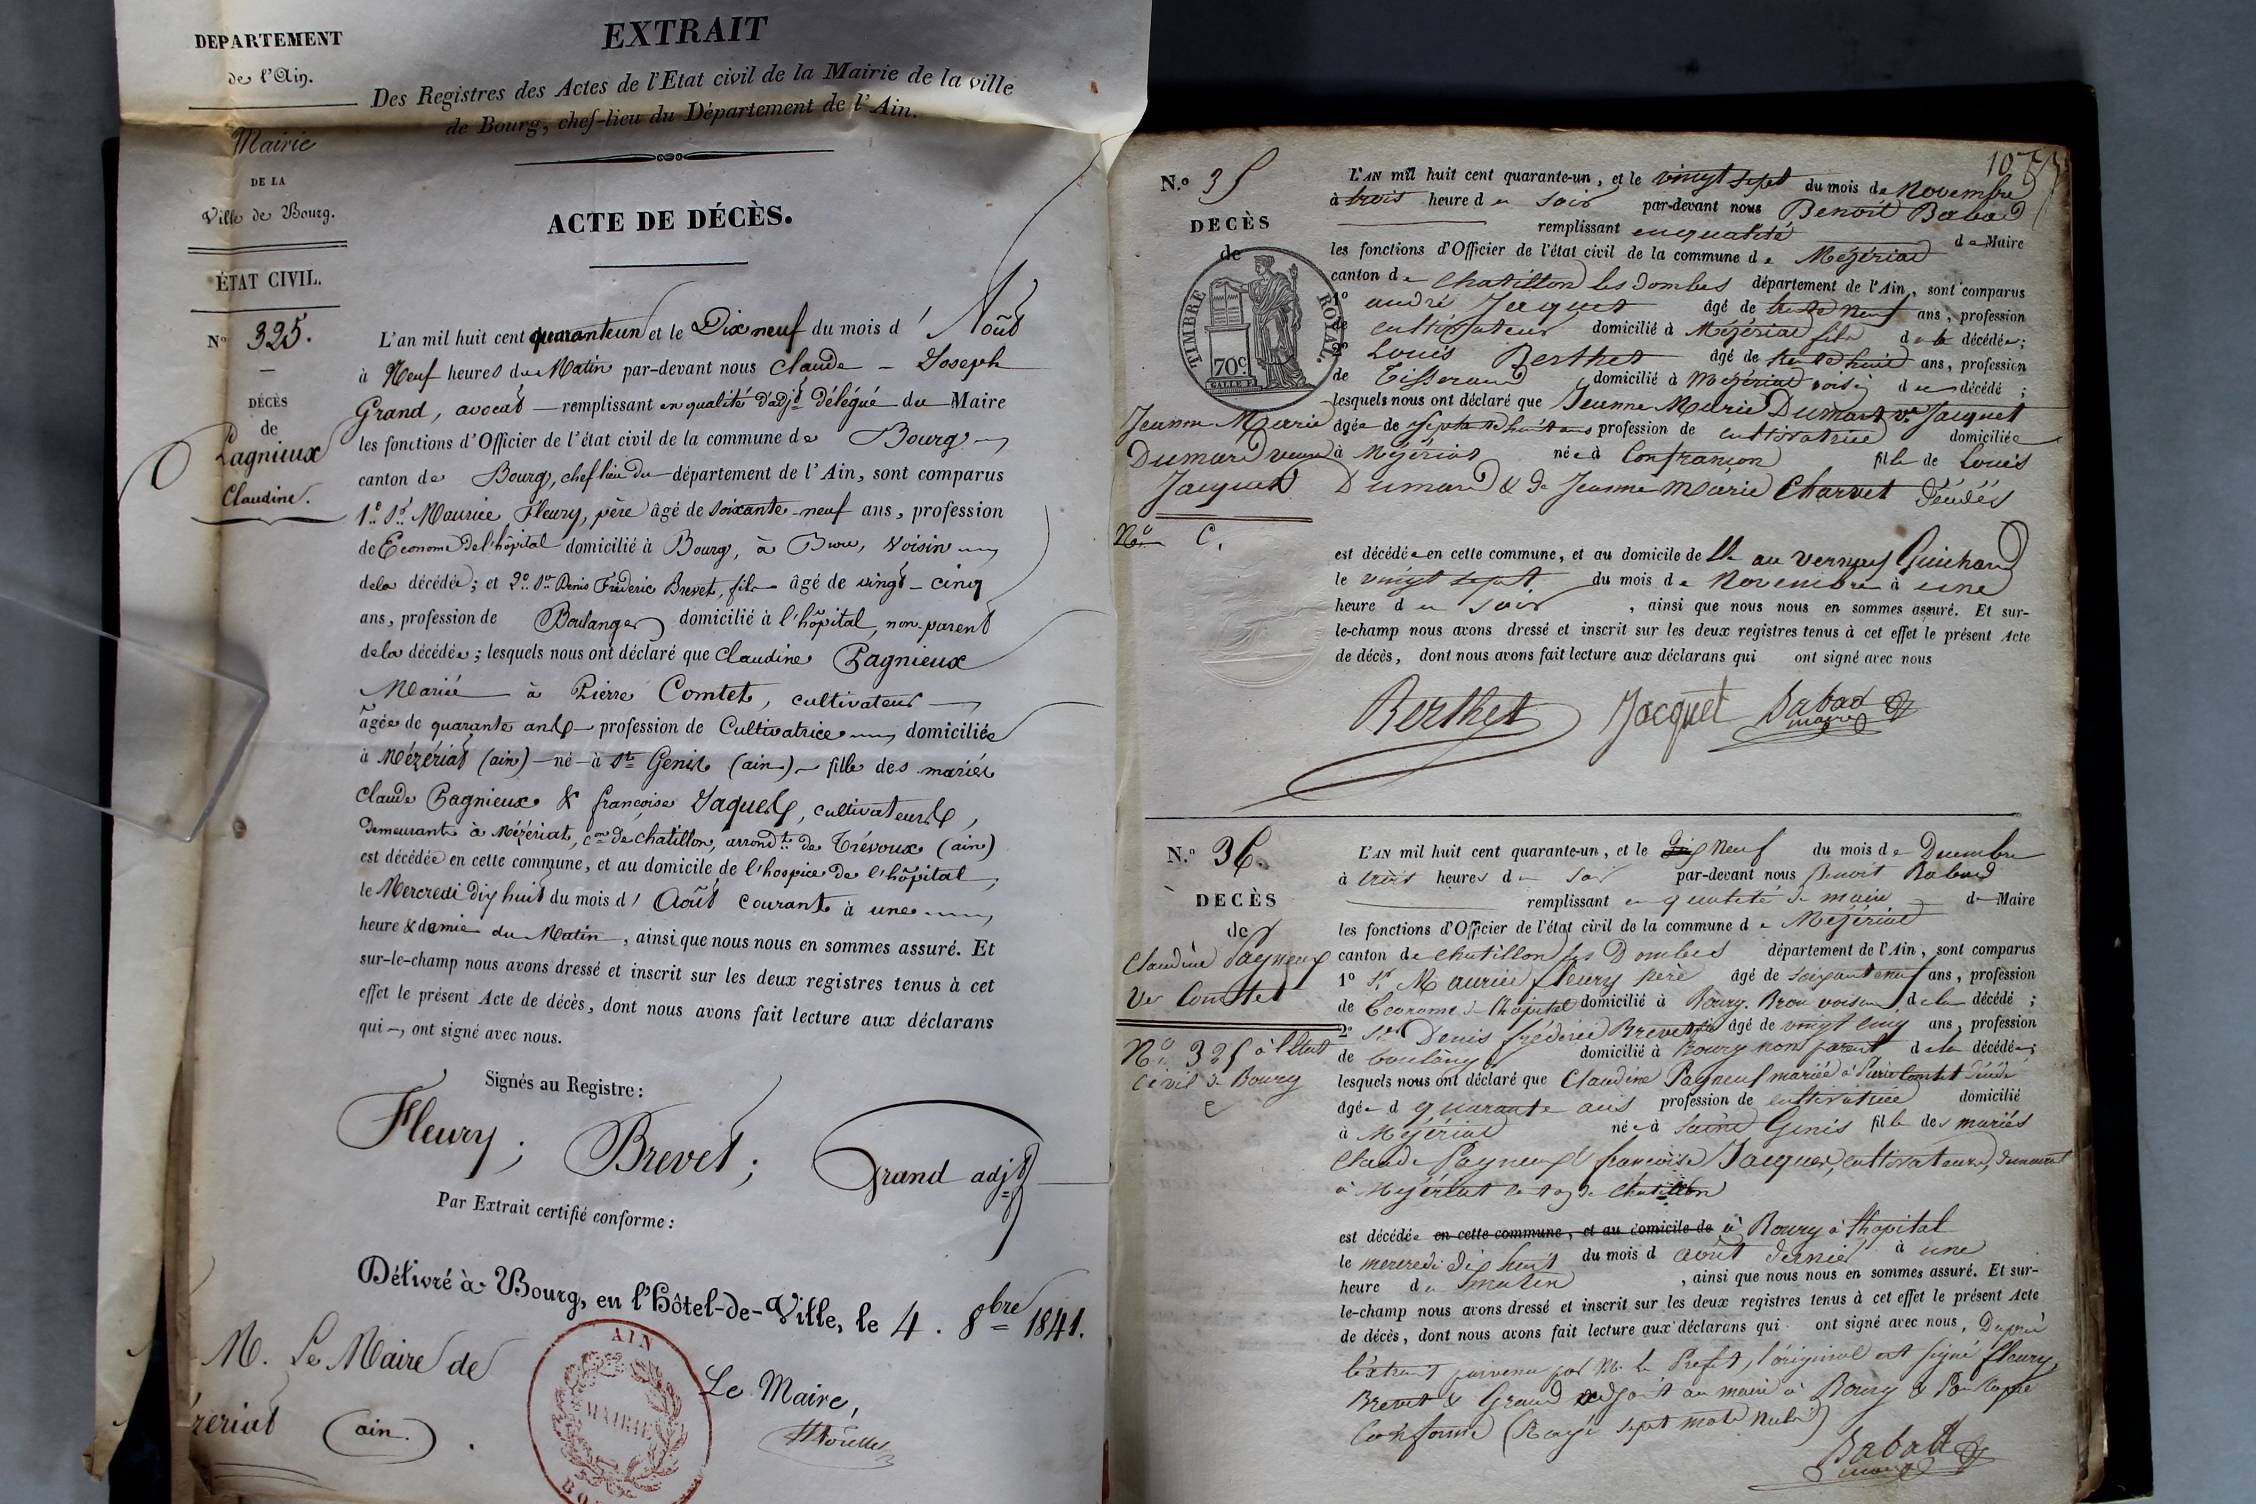 DEPARTEMENT
de l'Ain.
Mairie
DE LA
Ville de Bourg.
ÉTAT CIVIL.
N° 325.
DÉCÈS
de
Pagnieux
Claudine.
EXTRAIT
Des Registres des Actes de l'Etat civil de la Mairie de la ville
de Bourg, chef-lieu du Département de l'Ain.
ACTE DE DÉCÈS.
L'an mil huit cent quaranteun et le Dix neuf du mois d' Août
à Neuf heures du Matin par-devant nous Claude - Joseph
Grand, avocat — remplissant en qualité d'adjt délégué du Maire
les fonctions d'Officier de l'état civil de la commune de Bourg
canton de Bourg, chef lieu du département de l'Ain, sont comparus
1° Sr Maurice Fleury, père âgé de soixante-neuf ans, profession
de Econome de l'hôpital domicilié à Bourg, à Brou, Voisin
de la décédée; et 2° Sr Denis Fréderic Brevet, fils âgé de vingt-cinq
ans, profession de Boulanger domicilié à l'hôpital, non-parent
de la décédée; lesquels nous ont déclaré que Claudine Pagnieux
Mariée à Pierre Comtet, cultivateur
âgée de quarante ans profession de Cultivatrice domiciliée
à Mézériat (ain) — né à St Genis (ain) — fille des mariés
Claude Pagnieux & françoise Jaquet, cultivateurs,
demeurants à Mézériat, con de Chatillon, arrondt de Trévoux (ain)
est décédée en cette commune, et au domicile de l'hospice de l'hôpital,
le Mercredi dix huit du mois d' Août courant à une
heure & demie du Matin, ainsi que nous nous en sommes assuré. Et
sur-le-champ nous avons dressé et inscrit sur les deux registres tenus à cet
effet le présent Acte de décès, dont nous avons fait lecture aux déclarans
qui —, ont signé avec nous.
Signés au Registre:
Fleury; Brevet; Grand adjt
Par Extrait certifié conforme:
Délivré à Bourg, en l'Hôtel-de-Ville, le 4. 8bre 1841.
M. Le Maire de
(ain).
Le Maire,
AIN
MAIRIE
N.° 35
DECÈS
de
TIMBRE ROYAL.
70c
Jeanne Marie
Dumard veuve
Jacquet
N° C.
107
L'AN mil huit cent quarante-un, et le vingt sept du mois de Novembre
à trois heure d u soir par-devant nous Benoit Babad
remplissant en qualité de Maire
les fonctions d'Officier de l'état civil de la commune de Mézériat
canton de Chatillon les Dombes département de l'Ain, sont comparus
1° andré Jacquet âgé de trente neuf ans, profession
de cultivateur domicilié à Mézériat fils de la décédée;
2° Louis Berthet âgé de trente huit ans, profession
de Tisserand domicilié à Mézériat voisin de décédé;
lesquels nous ont déclaré que Jeanne Marie Dumard ve Jacquet
âgée de septante huit ans profession de cultivatrice domiciliée
à Mézériat née à Confrançon fille de Louis
Dumard & de Jeanne Marie Charvet décédés
est décédée en cette commune, et au domicile de au Vernay Guichard
le vingt sept du mois de Novembre à une
heure d u soir, ainsi que nous nous en sommes assuré. Et sur-
le-champ nous avons dressé et inscrit sur les deux registres tenus à cet effet le présent Acte
de décès, dont nous avons fait lecture aux déclarans qui ont signé avec nous
Berthet Jacquet Babad
maire
N.° 36.
DECÈS
de
Claudine Pagneux
Ve Comtet
N° 325 à l'Etat
Civil de Bourg
L'AN mil huit cent quarante-un, et le Dix Neuf du mois de Decembre
à trois heures d u soir par-devant nous Benoit Babad
remplissant en qualité de maire de Maire
les fonctions d'Officier de l'état civil de la commune de Mézériat
canton de Chatillon les Dombes département de l'Ain, sont comparus
1° Sr Maurice fleury père âgé de soixante neuf ans, profession
de Econome de l'hopital domicilié à Bourg. Brou voisin de la décédé;
2° Sr Denis fréderic Brevet fils âgé de vingt cinq ans, profession
de boulanger domicilié à Bourg non parent de la décédée;
lesquels nous ont déclaré que Claudine Pagneux mariée à Pierre Comtet décédé
âgée d quarante ans profession de cultivatrice domicilié
à Mézériat née à Saint Genis fille des mariés
Claude Pagneux & françoise Jacquet, cultivateurs, demeurant
à Mézériat canton de Chatillon
est décédée en cette commune, et au domicile de à Bourg à l'hopital
le mercredi dix huit du mois d août dernier à une
heure du matin, ainsi que nous nous en sommes assuré. Et sur-
le-champ nous avons dressé et inscrit sur les deux registres tenus à cet effet le présent Acte
de décès, dont nous avons fait lecture aux déclarans qui ont signé avec nous, D'après
l'extrait parvenu par M. le Prefet, l'original est signé fleury,
Brevet & Grand adjoint au maire à Bourg & Pour Copie
Conforme (Rayé sept mots nuls)
Babad
maire